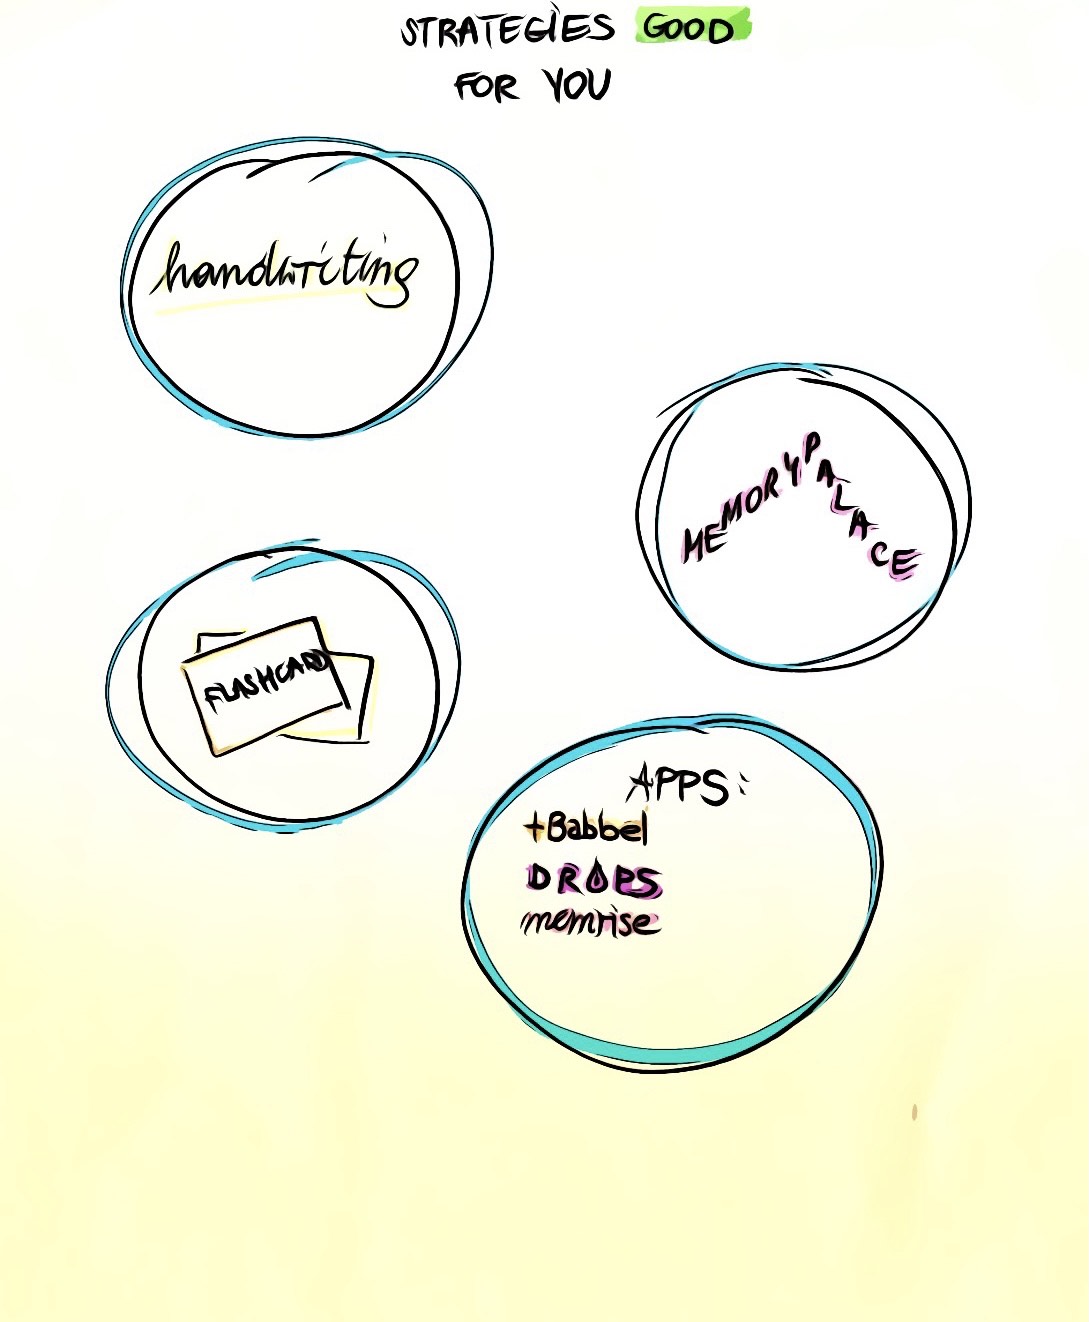 STRATEGIES GOOD
FOR YOU
handwriting
MEMORY PALACE
FLASHCARD
APPS:
+Babbel
DROPS
memrise